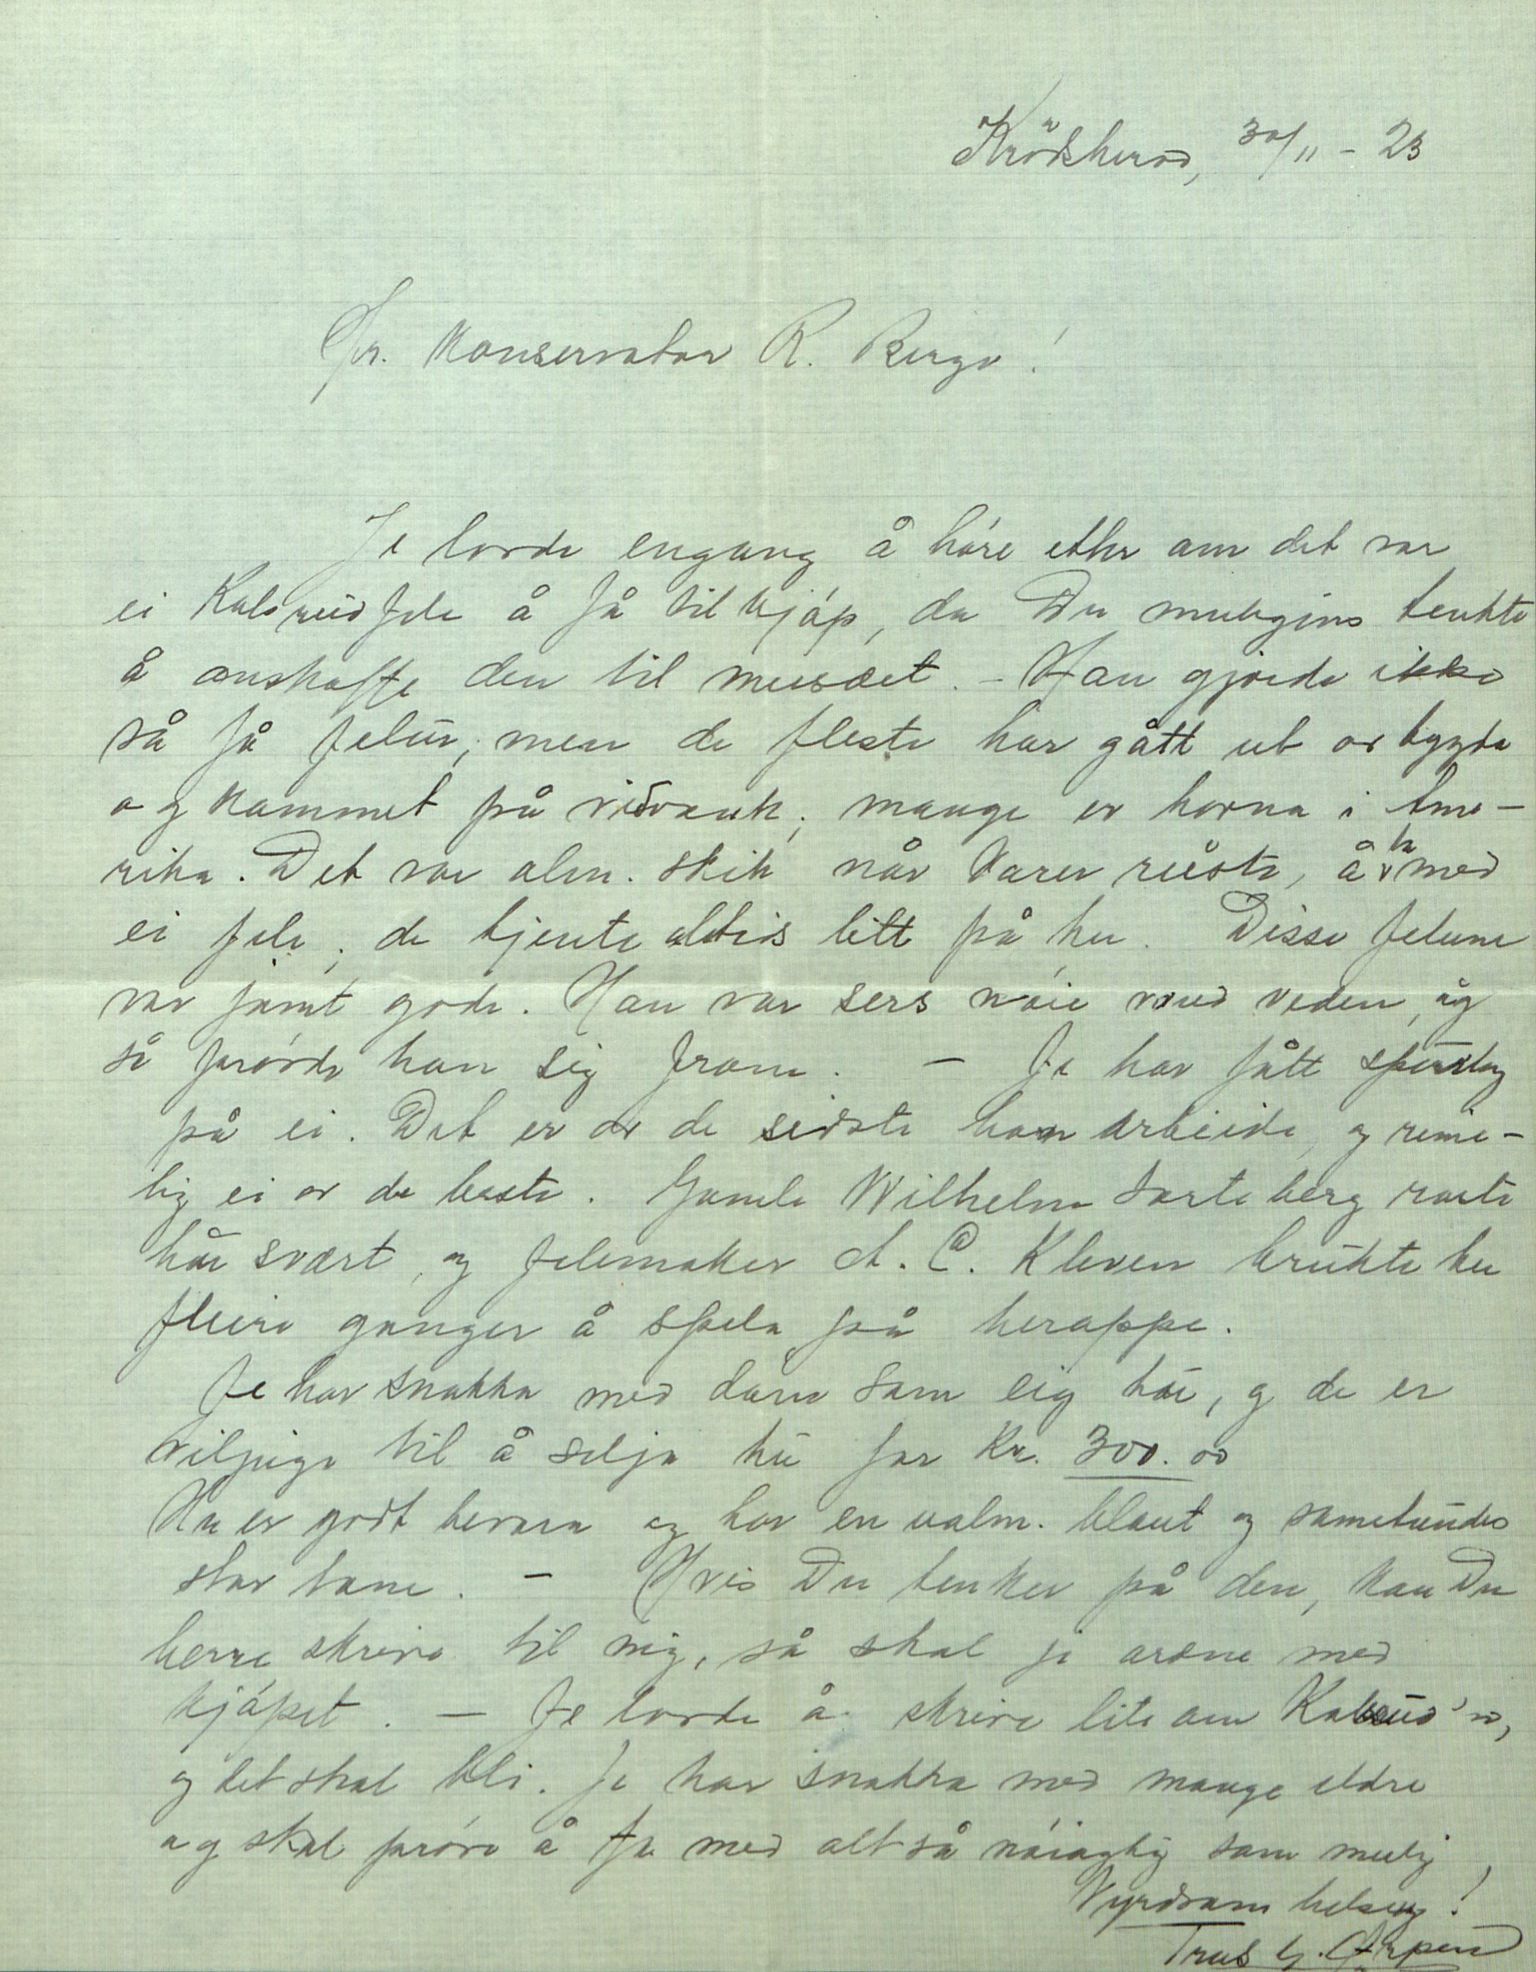 Krødsherad, 30/11 - 23
Hr. Konservator R. Berge!
Je lovde engang å høre etter om det var
ei Kalsrudfele å få til kjøp, da Du muligens tenkte
å anskaffe den til museet. - Han gjorde ikke
så få felur, men de fleste har gått ut or bygda
og kommet på vidvank, mange er havna i Ame-
rika. Det var alm. skik når karer reiste, å ha med
ei fele, de tjente altids litt på hu. Disse felune
var jamt gode. Han var sers nøie med veden, åg
så prøvde han sig fram. - Je har fått spurslag
på ei. Det er or de sidste han arbeide, og rime-
lig ei or de beste. Gamle Wilhelm Sorteberg roste
hu svært, og felemaker A. C. Kleven brukte hu
fleire ganger å spela på heroppe.
Je har snakka med dom som eig hu, og de er
viljuge til å selja hu for Kr. 300.00
Hu er godt bevara og har en ualm. blaut og sametundes
stor tone. - Hvis Du tenker på den, kan Du
berre skrive til mig, så skal je ordne med
kjøpet. - Je lovde å skrive lite om Kalsrud'n,
og det skal bli. Je har snakka med mange eldre
og skal prøve å fa med alt så nøiagtig som mulig,
Vyrdsam helsing!
Truls G. Ørpen